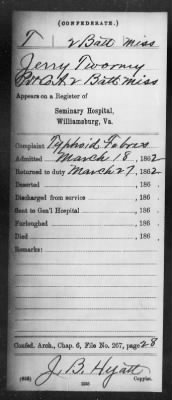 (CONFEDERATE.)
T 2 Batt Miss
Jerry Twoomy
Pvt Co A, 2 Batt Miss
Appears on a Register of
Seminary Hospital,
Williamsburg, Va.
Complaint Typhoid Febris
Admitted March 18, 1862
Returned to duty March 27, 1862
Deserted , 186
Discharged from service , 186
Sent to Gen'l Hospital , 186
Furloughed , 186
Died , 186
Remarks:
Confed. Arch., Chap. 6, File No. 267, page 28
J. B. Hyatt
(635) Copyist.